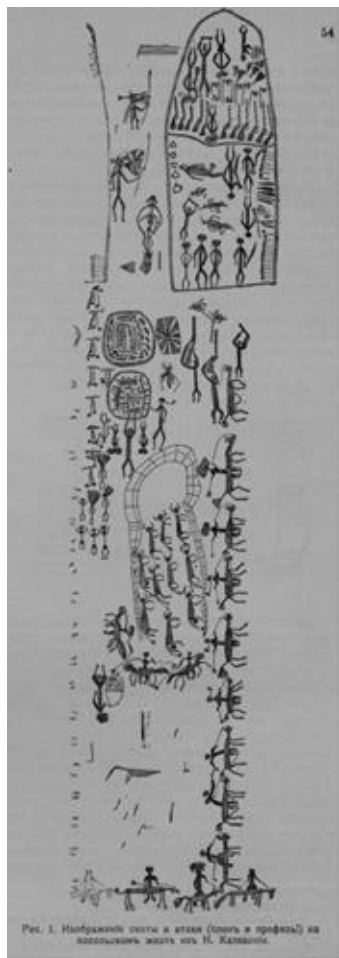 54
Рис. 1. Изображенія охоты и атаки (планъ и профиль!) на
посольскомъ жезлѣ изъ Н. Каледоніи.